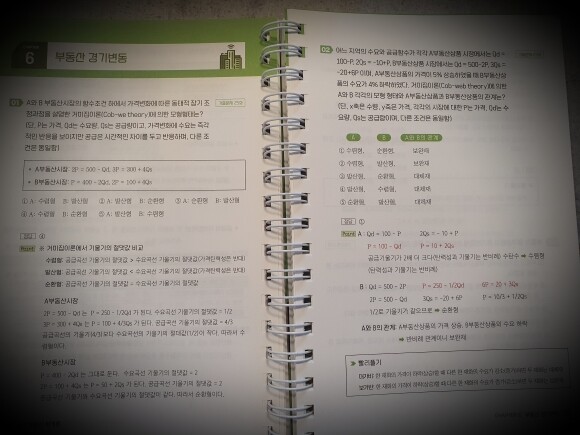 6 부동산 경기변동
01 A와 B 부동산시장의 함수조건 하에서 가격변화에 따른 동태적 장기 조
정과정을 설명한 거미집이론(Cob-we theory)에 의한 모형형태는?
(단, P는 가격, Qd는 수요량, Qs는 공급량이고, 가격변화에 수요는 즉각
적인 반응을 보이지만 공급은 시간적인 차이를 두고 반응하며, 다른 조
건은 동일함)
• A부동산시장: 2P = 500 - Qd, 3P = 300 + 4Qs
• B부동산시장: P = 400 - 2Qd, 2P = 100 + 4Qs
① A: 수렴형 B: 발산형 ② A: 발산형 B: 순환형 ③ A: 순환형 B: 발산형
④ A: 수렴형 B: 순환형 ⑤ A: 발산형 B: 수렴형
정답 ④
Point ※ 거미집이론에서 기울기의 절댓값 비교
수렴형: 공급곡선 기울기의 절댓값 > 수요곡선 기울기의 절댓값(가격탄력성은 반대)
발산형: 공급곡선 기울기의 절댓값 < 수요곡선 기울기의 절댓값(가격탄력성은 반대)
순환형: 공급곡선 기울기의 절댓값 = 수요곡선 기울기의 절댓값
A부동산시장
2P = 500 - Qd는 P = 250 - 1/2Qd가 된다. 수요곡선 기울기의 절댓값 = 1/2
3P = 300 + 4Qs는 P = 100 + 4/3Qs가 된다. 공급곡선 기울기의 절댓값 = 4/3
공급곡선의 기울기(4/3)보다 수요곡선의 기울기의 절대값(1/2)이 작다. 따라서 수
렴형이다.
B부동산시장
P = 400 - 2Qd는 그대로 둔다. 수요곡선 기울기의 절댓값 = 2
2P = 100 + 4Qs는 P = 50 + 2Qs가 된다. 공급곡선 기울기의 절댓값 = 2
공급곡선과 수요곡선 기울기의 절댓값이 같다. 따라서 순환형이다.
02 어느 지역의 수요와 공급함수가 각각 A부동산상품 시장에서는 Qd =
100-P, 2Qs = -10+P, B부동산상품 시장에서는 Qd = 500-2P, 3Qs =
-20+6P이며, A부동산상품의 가격이 5% 상승하였을 때 B부동산상
품의 수요가 4% 하락하였다. 거미집이론(Cob-web theory)에 의한
A와 B 각각의 모형 형태와 A부동산상품과 B부동산상품의 관계는?
(단, x축은 수량, y축은 가격, 각각의 시장에 대한 P는 가격, Qd는 수
요량, Qs는 공급량이며, 다른 조건은 동일함)
A B A와 B의 관계
① 수렴형, 순환형, 보완재
② 수렴형, 발산형, 보완재
③ 발산형, 순환형, 대체재
④ 발산형, 수렴형, 대체재
⑤ 순환형, 발산형, 대체재
정답 ①
Point A : Qd = 100 - P 2Qs = -10 + P
P = 100 - Qd P = 10 + 2Qs
공급기울기가 2배 더 크다(탄력성과 기울기는 반비례) 수탄수 ⇒ 수렴형
(탄력성과 기울기는 반비례)
B : Qd = 500 - 2P P = 250 - 1/2Qd 6P = 20 + 3Qs
2P = 500 - Qd 3Qs = -20 + 6P P = 10/3 + 1/2Qs
1/2로 기울기가 같으므로 ⇒ 순환형
A와 B의 관계: A부동산상품의 가격 상승, B부동산상품의 수요 하락
⇒ 반비례 관계이니 보완재
➤ 빨리풀기